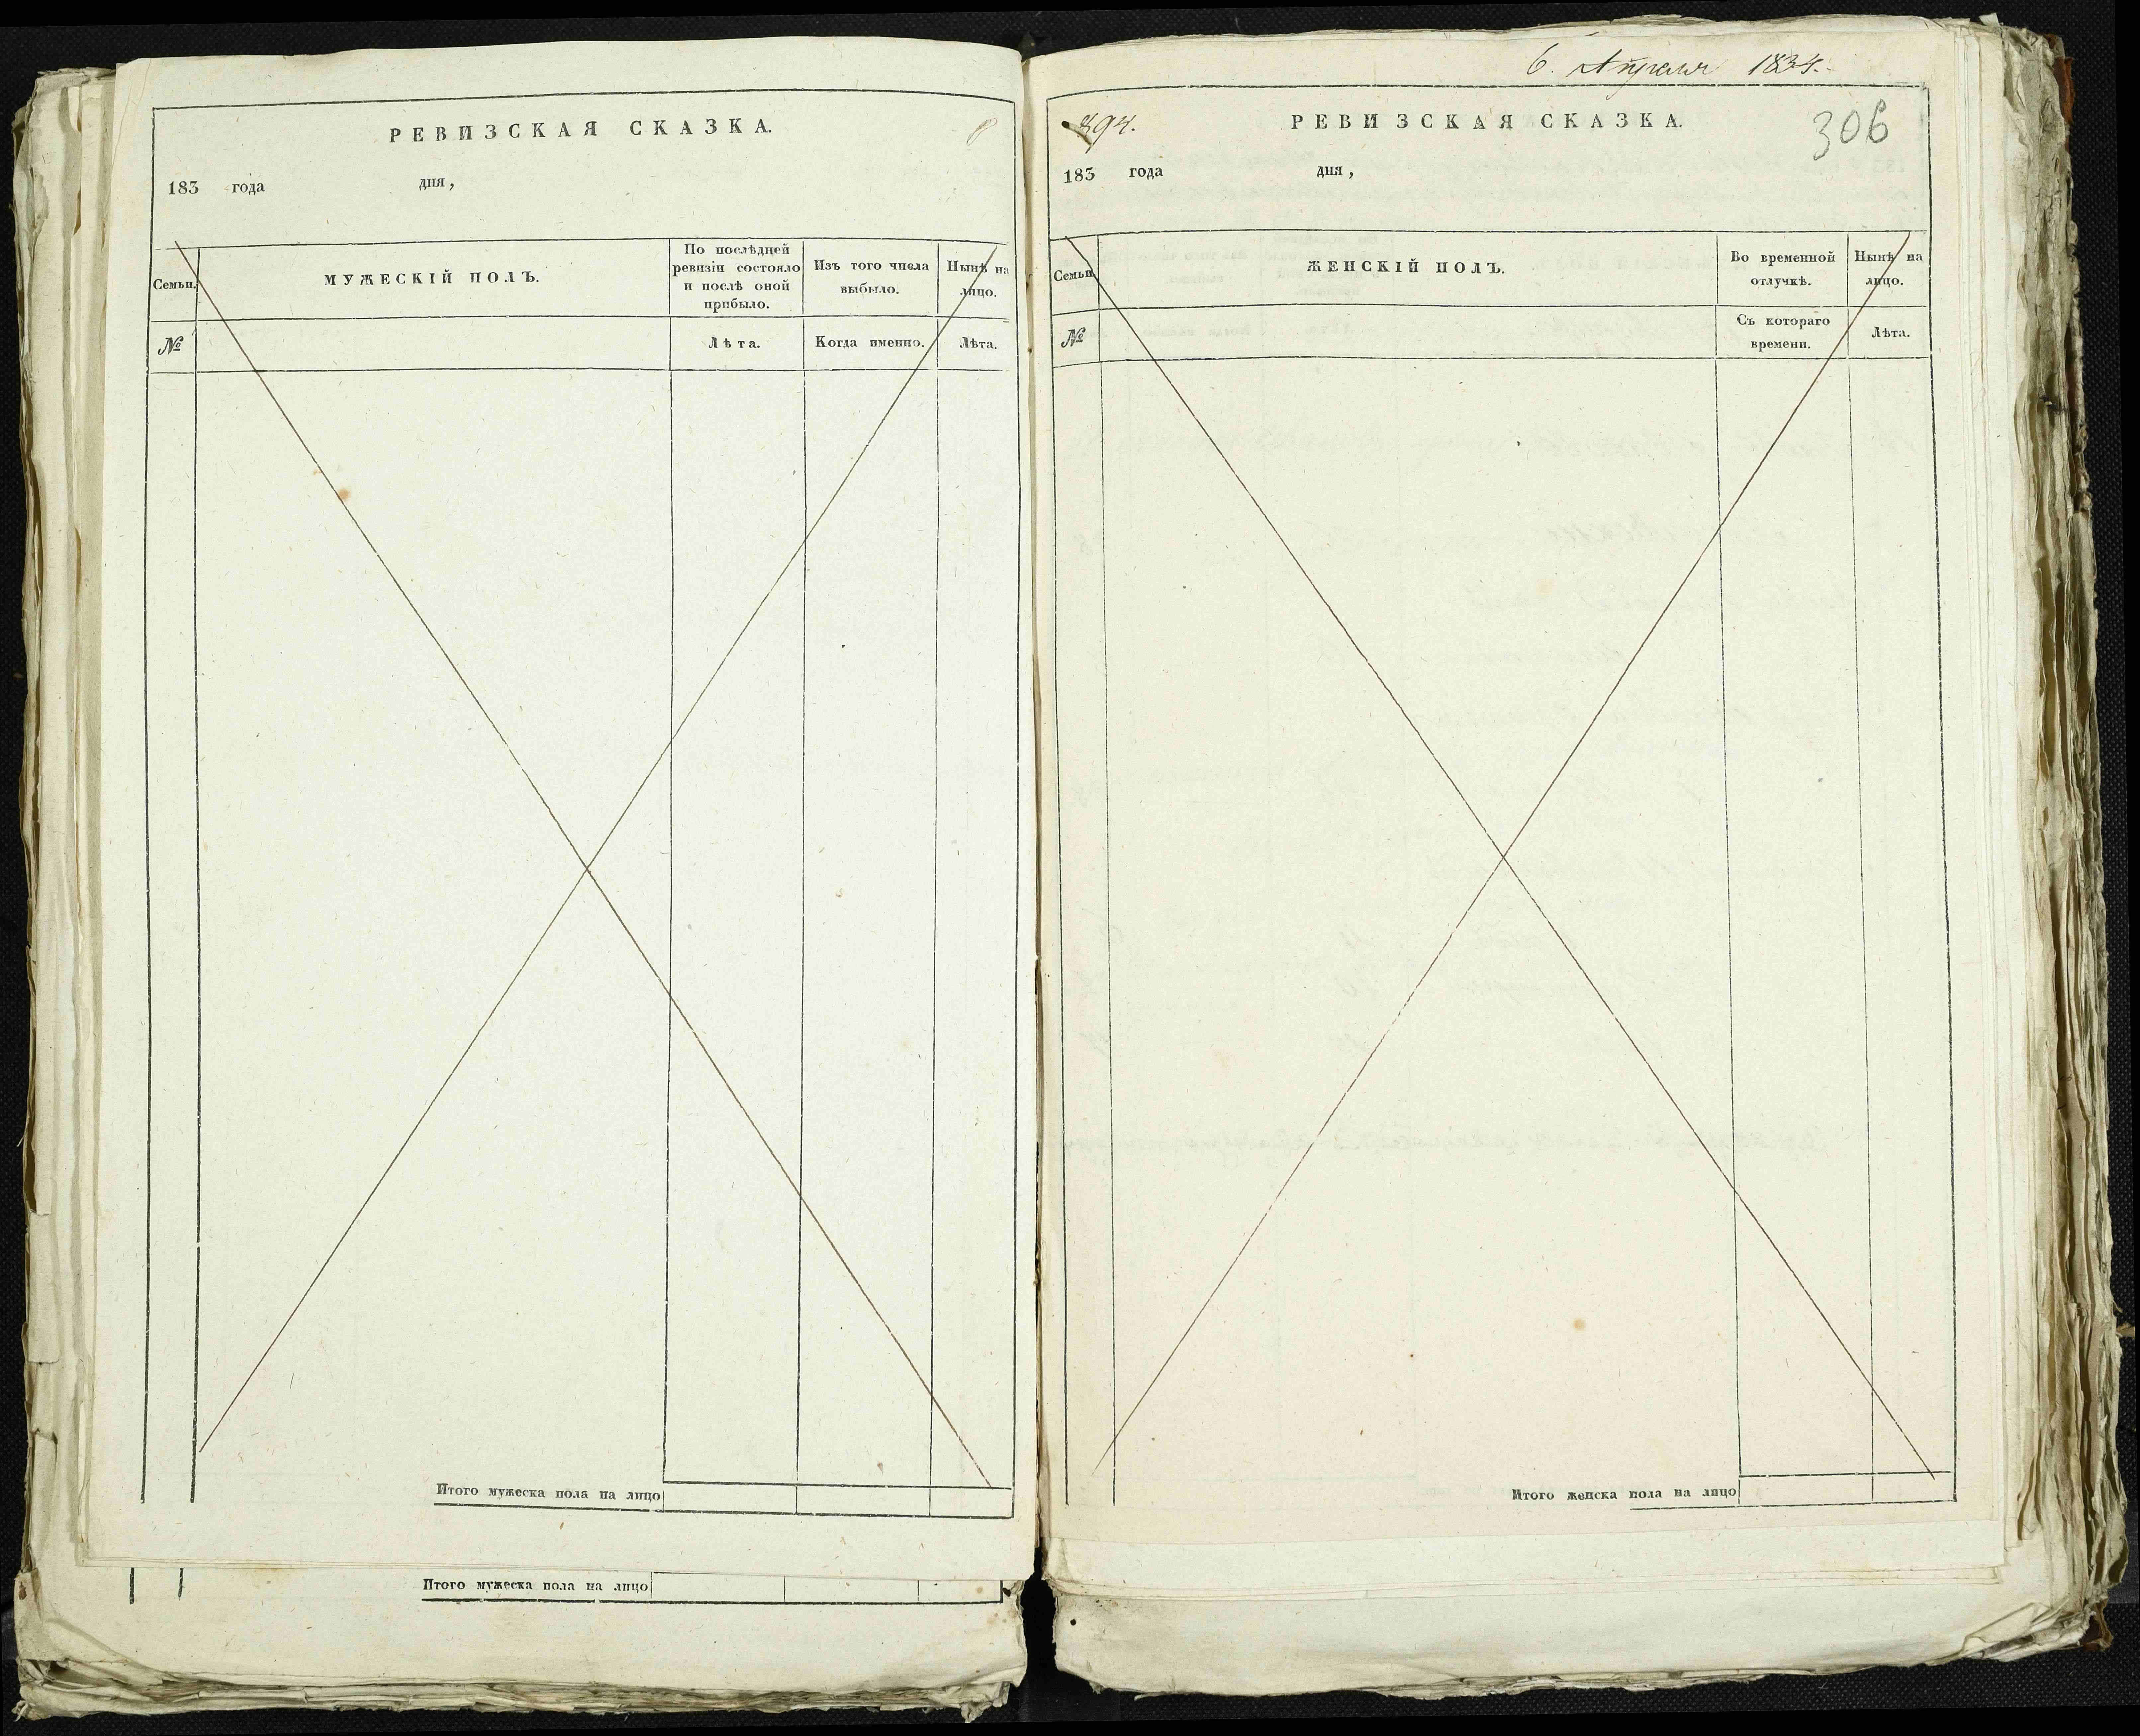 РЕВИЗСКАЯ СКАЗКА.
183 года дня,
Семьи.
МУЖЕСКІЙ ПОЛЪ.
По послѣдней
ревизіи состояло
и послѣ оной
прибыло.
Изъ того числа
выбыло.
Нынѣ на
лицо.
№
Лѣта.
Когда именно.
Лѣта.
Итого мужеска пола на лицо
Итого мужеска пола на лицо
6. Апреля 1834.
394.
РЕВИЗСКАЯ СКАЗКА.
306
183 года дня,
Семьи.
ЖЕНСКІЙ ПОЛЪ.
Во временной
отлучкѣ.
Нынѣ на
лицо.
№
Съ котораго
времени.
Лѣта.
Итого женска пола на лицо